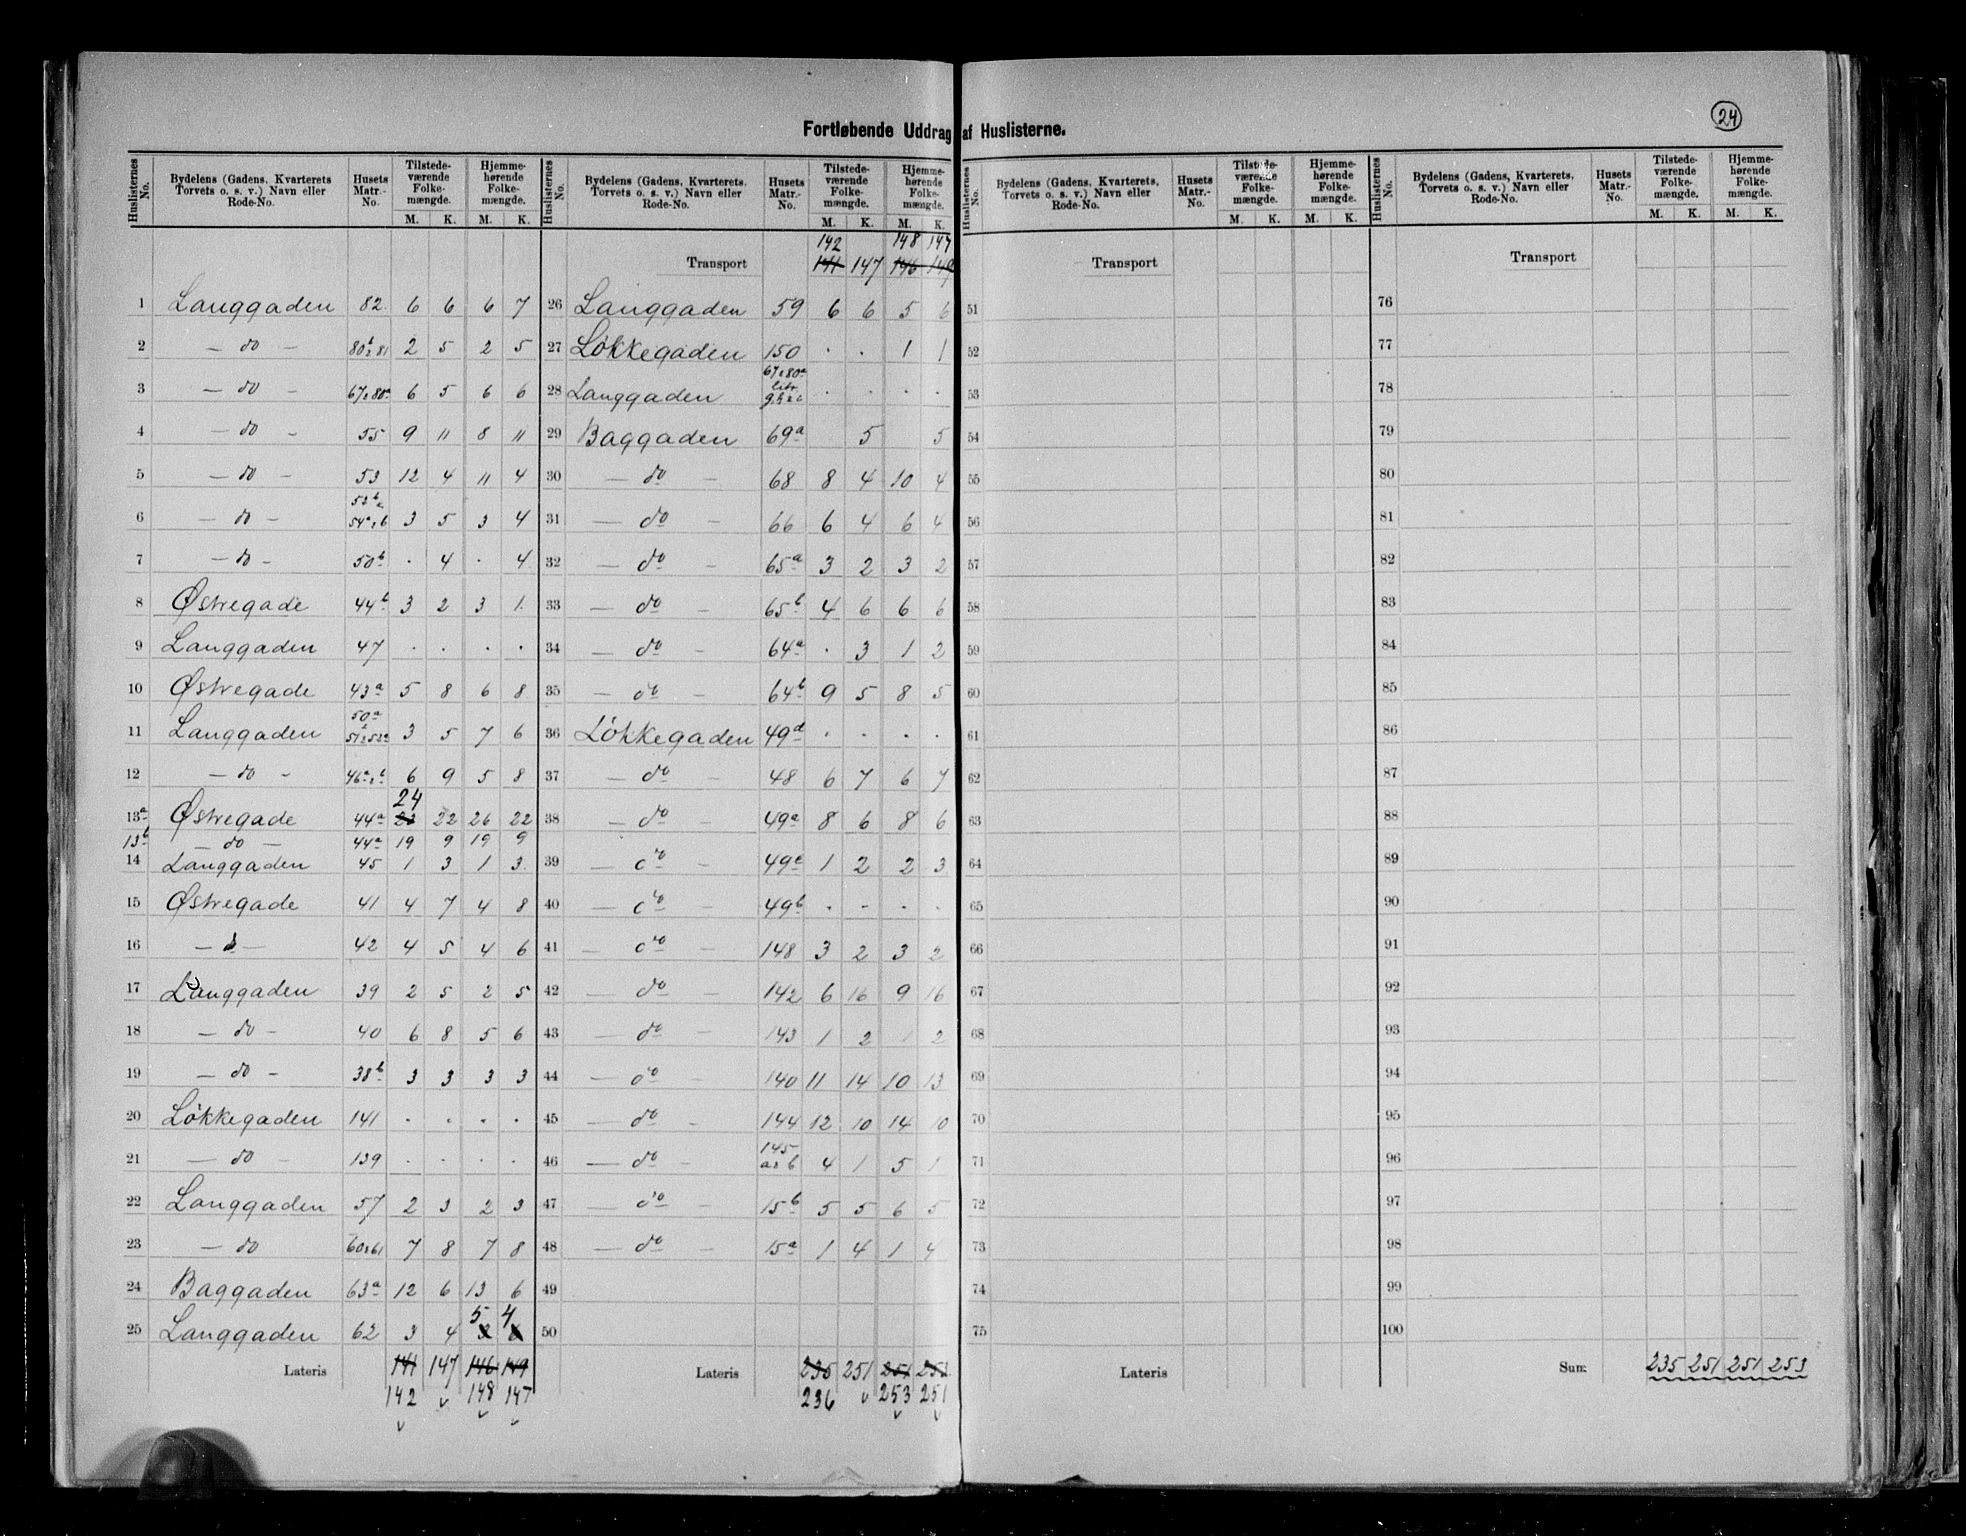 24
Fortløbende Uddrag af Huslisterne.
Huslisternes No. Bydelens (Gadens, Kvarterets, Torvets o. s. v.) Navn eller Rode-No. Husets Matr.-No. Tilstedeværende Folkemængde. M. K. Hjemmehørende Folkemængde. M. K.
1 Langgaden 82 6 6 6 7
2 — do — 80b & 81 2 5 2 5
3 — do — 67 & 80a 6 5 6 6
4 — do — 55 9 11 8 11
5 — do — 53 12 4 11 4
6 — do — 52b & 54a & b 3 5 3 4
7 — do — 50b · 4 · 4
8 Østregade 44b 3 2 3 1
9 Langgaden 47 · · · ·
10 Østregade 43a 5 8 6 8
11 Langgaden 50a 51 & 52a 3 5 7 6
12 — do — 46a & b 6 9 5 8
13a Østregade 44a 24 22 26 22
13b — do — 44a 19 9 19 9
14 Langgaden 45 1 3 1 3
15 Østregade 41 4 7 4 8
16 — d — 42 4 5 4 6
17 Langgaden 39 2 5 2 5
18 — do — 40 6 8 5 6
19 — do — 38b 3 3 3 3
20 Løkkegaden 141 · · · ·
21 — do — 139 · · · ·
22 Langgaden 57 2 3 2 3
23 — do 60 & 61 7 8 7 8
24 Baggaden 63a 12 6 13 6
25 Langgaden 62 3 4 5 4
Lateris 141 147 146 149
142 148 147
Huslisternes No. Bydelens (Gadens, Kvarterets, Torvets o. s. v.) Navn eller Rode-No. Husets Matr.-No. Tilstedeværende Folkemængde. M. K. Hjemmehørende Folkemængde. M. K.
142 148 147
Transport 141 147 146 149
26 Langgaden 59 6 6 5 6
27 Løkkegaden 150 · · 1 1
28 Langgaden 67 & 80a litr · · · ·
29 Baggaden 69a 5 5
30 — do — 68 8 4 10 4
31 — do — 66 6 4 6 4
32 — do — 65a 3 2 3 2
33 — do — 65b 4 6 6 6
34 — do — 64a · 3 1 2
35 — do — 64b 9 5 8 5
36 Løkkegaden 49d · · · ·
37 — do — 48 6 7 6 7
38 — do — 49a 8 6 8 6
39 — do — 49c 1 2 2 3
40 — do — 49b · · · ·
41 — do — 148 3 2 3 2
42 — do — 142 6 16 9 16
43 — do — 143 1 2 1 2
44 — do — 140 11 14 10 13
45 — do — 144 12 10 14 10
46 — do — 145 a & b 4 1 5 1
47 — do — 15b 5 5 6 5
48 — do — 15a 1 4 1 4
49
50
Lateris 235 251 251 253
236 253 251
Huslisternes No. Bydelens (Gadens, Kvarterets, Torvets o. s. v.) Navn eller Rode-No. Husets Matr.-No. Tilstedeværende Folkemængde. M. K. Hjemmehørende Folkemængde. M. K.
Transport
51
52
53
54
55
56
57
58
59
60
61
62
63
64
65
66
67
68
69
70
71
72
73
74
75
Lateris
Huslisternes No. Bydelens (Gadens, Kvarterets, Torvets o. s. v.) Navn eller Rode-No. Husets Matr.-No. Tilstedeværende Folkemængde. M. K. Hjemmehørende Folkemængde. M. K.
Transport
76
77
78
79
80
81
82
83
84
85
86
87
88
89
90
91
92
93
94
95
96
97
98
99
100
Sum: 235 251 251 253